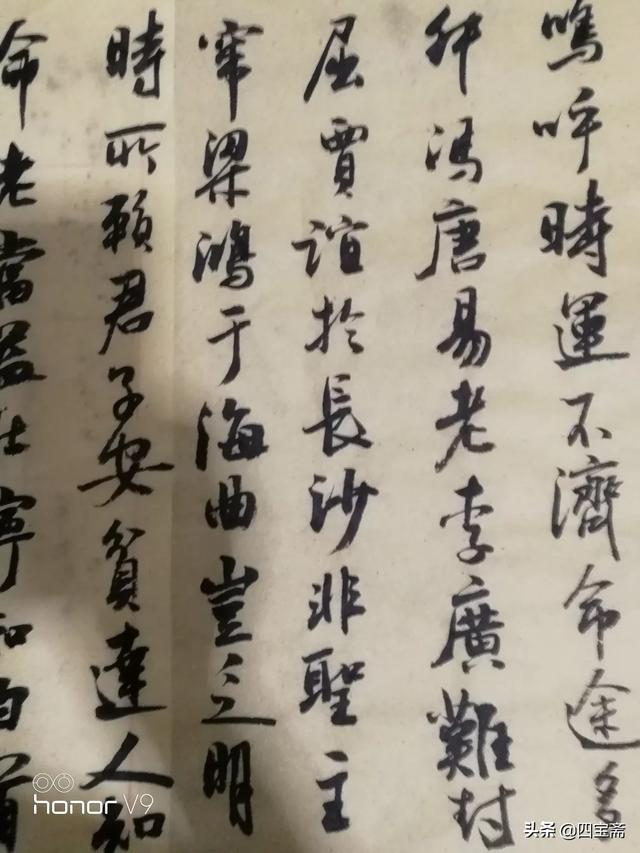 嗚呼時運不濟命途多
舛馮唐易老李廣難封
屈賈誼於長沙非聖主
窜梁鴻于海曲豈乏明
時所賴君子安貧達人知
命老當益壮寧知白首
honor V9
头条 @四宝斋